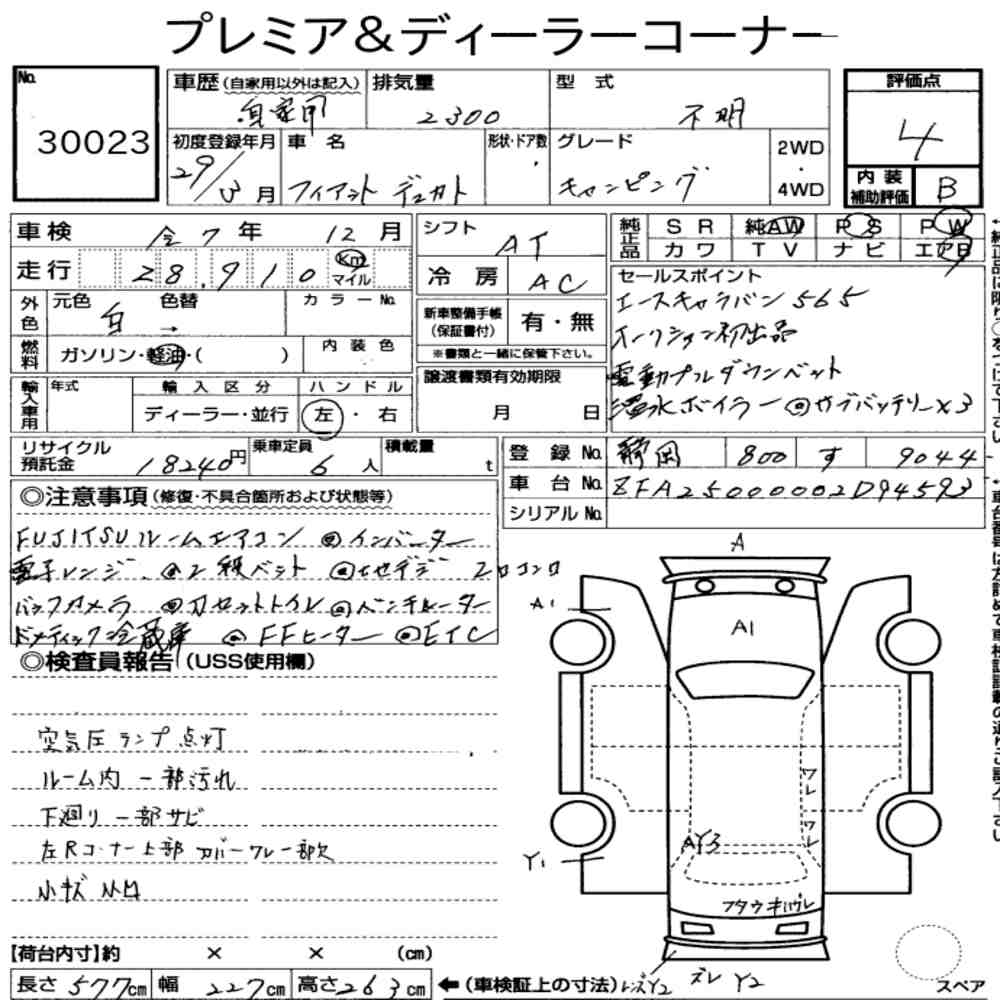 プレミア＆ディーラーコーナー
No.
30023
車歴(自家用以外は記入)
自家用
排気量
2300
型式
不明
評価点
4
内装補助評価
B
初度登録年月
29/3月
車名
フィアット デュカト
形状・ドア数
グレード
キャンピング
2WD・4WD
車検 令7年 12月
走行 28,910 Km マイル
シフト AT
冷房 AC
純正品 SR 純AW PS PW
カワ TV ナビ エアB
外色 元色 白 色替 → カラーNo.
燃料 ガソリン・軽油・( ) 内装色
新車整備手帳(保証書付) 有・無
※書類と一緒に保管下さい。
輸入車用 年式 輸入区分 ハンドル
ディーラー・並行 左・右
譲渡書類有効期限
月 日
セールスポイント
エースキャラバン565
オークション初出品
電動プルダウンベット
温水ボイラー ◎サブバッテリー×3
リサイクル預託金 18240円 乗車定員 6人 積載量 t
登録No. 静岡 800 す 9044
車台No. ZFA25000002D94593
シリアルNo.
◎注意事項(修復・不具合箇所および状態等)
FUJITSUルームエアコン ◎インバーター
電子レンジ ◎2段ベット ◎地デジ 2口コンロ
バックカメラ ◎カセットトイレ ◎ベンチレーター
ドメティック冷蔵庫 ◎FFヒーター ◎ETC
◎検査員報告(USS使用欄)
空気圧ランプ点灯
ルーム内 一部汚れ
下廻り 一部サビ
左Rコーナー上部 カバーワレ一部欠
小キズ 小凹
A
A1
A1
ワレ
ワレ
AY3
Y1
フタウキ ワレ
レンズY2
ズレ Y2
スペア
【荷台内寸】約 × × (cm)
長さ 577cm 幅 227cm 高さ 263cm ←(車検証上の寸法)